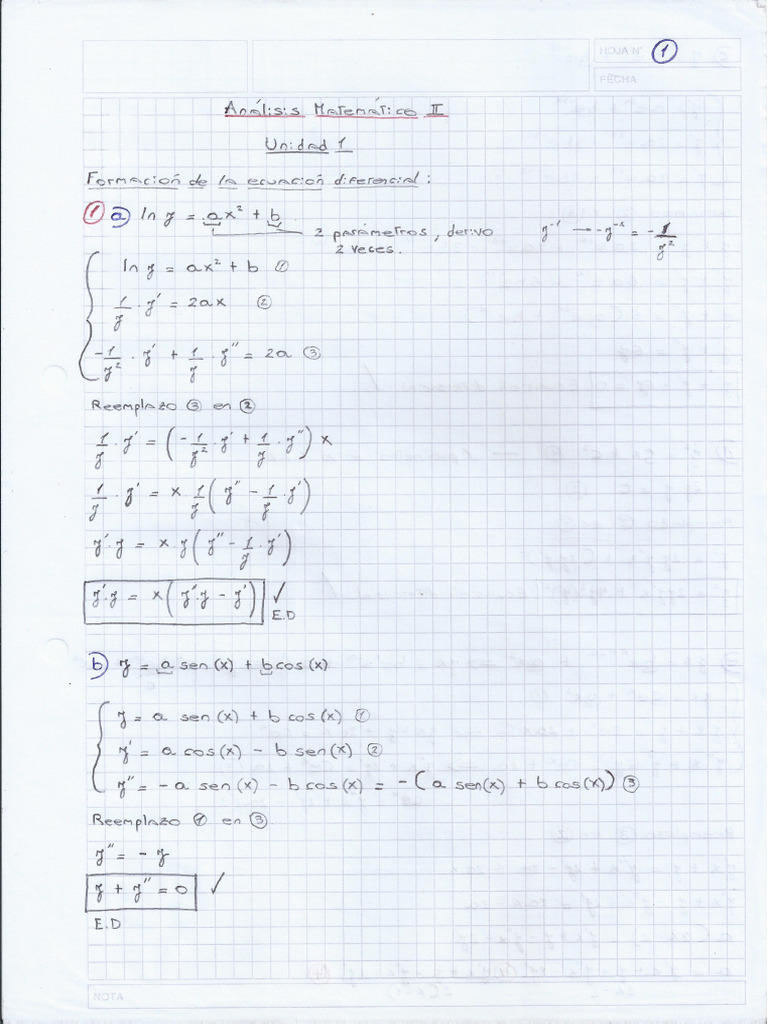 HOJA N° 1
FECHA
Análisis Matemático II
Unidad 1
Formación de la ecuación diferencial:
1 a) ln y = ax² + b
2 parámetros, derivo
2 veces.
y⁻¹ → -y⁻² = -1/y²
ln y = ax² + b ①
1/y · y' = 2ax ②
-1/y² · y' + 1/y · y'' = 2a ③
Reemplazo ③ en ②
1/y · y' = (-1/y² · y' + 1/y · y'') x
1/y · y' = x 1/y (y'' - 1/y · y')
y'·y = x y (y'' - 1/y · y')
y'·y = x (y''·y - y') ✓
E.D
b) y = a sen(x) + b cos(x)
y = a sen(x) + b cos(x) ①
y' = a cos(x) - b sen(x) ②
y'' = -a sen(x) - b cos(x) = -(a sen(x) + b cos(x)) ③
Reemplazo ① en ③
y'' = - y
y + y'' = 0 ✓
E.D
NOTA